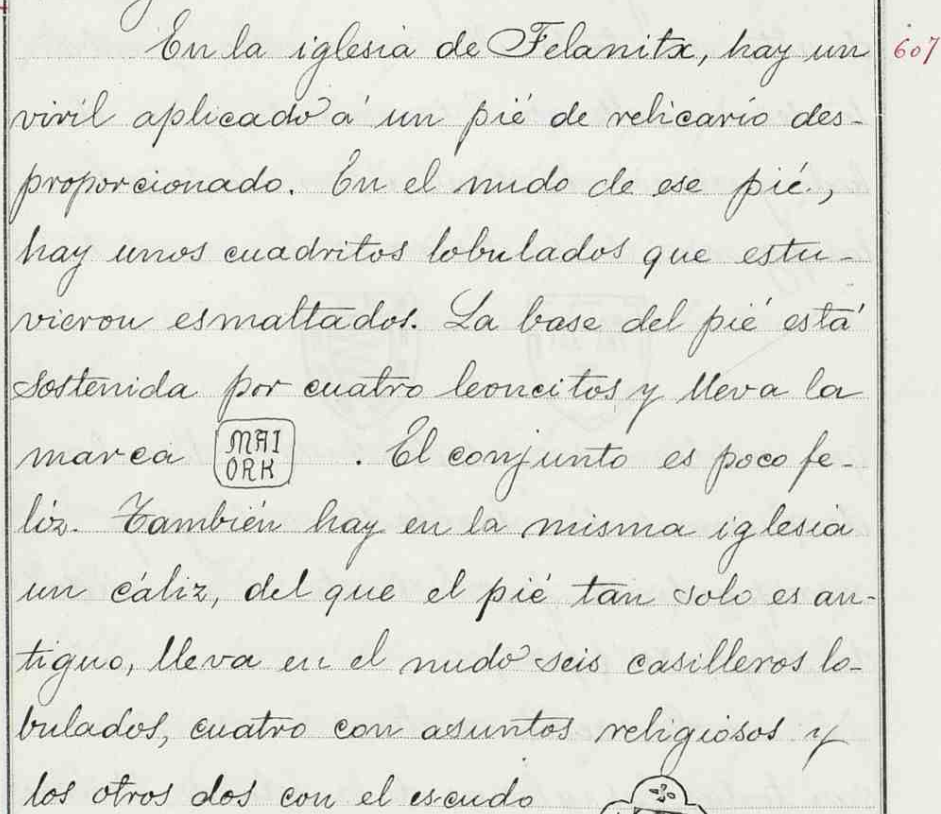 En la iglesia de Felanitx, hay un
607
viril aplicado á un pié de relicario des-
proporcionado. En el nudo de ese pié.,
hay unos cuadritos lobulados que estu-
vieron esmaltados. La base del pié está
sostenida por cuatro leoncitos y lleva la
marca MAI ORK . El conjunto es poco fe-
liz. También hay en la misma iglesia
un cáliz, del que el pié tan solo es an-
tiguo, lleva en el nudo seis casilleros lo-
bulados, cuatro con asuntos religiosos y
los otros dos con el escudo